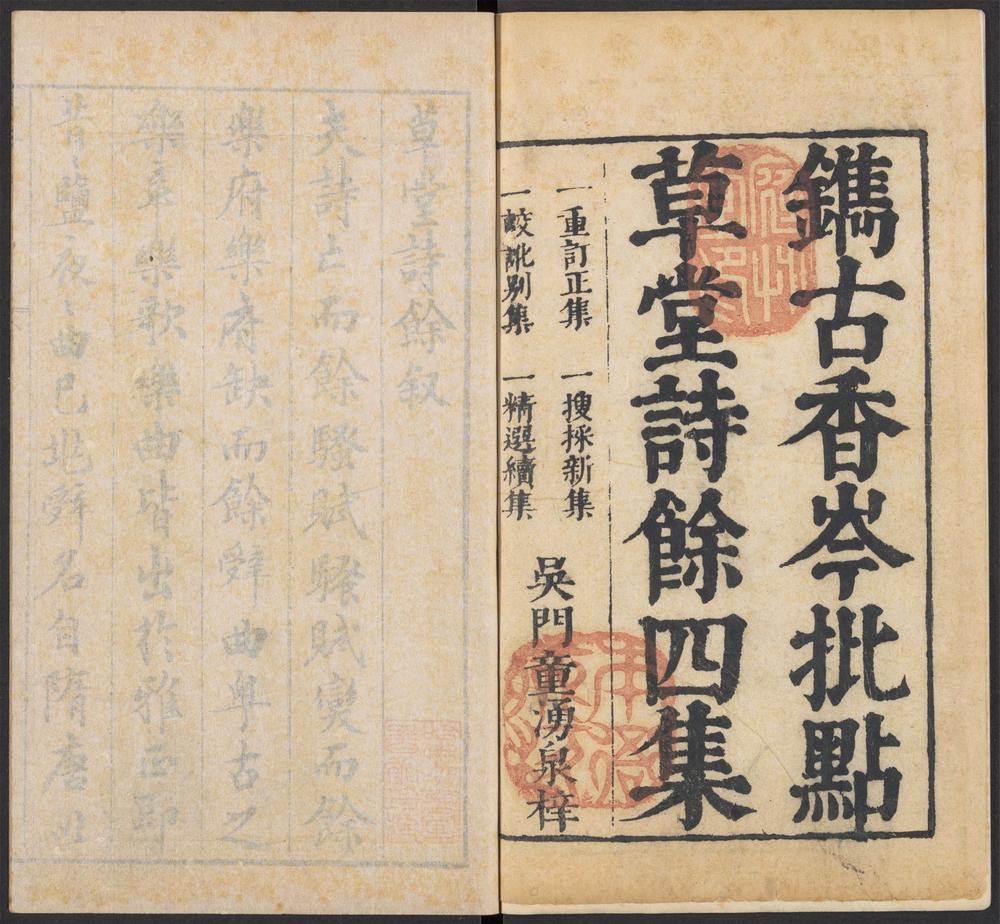 鐫古香岑批點
草堂詩餘四集
一重訂正集　一搜採新集
一較訛別集　一精選續集
吳門童湧泉梓
草堂詩餘叙
夫詩亡而餘騷賦騷賦變而餘
樂府樂府缺而餘辭曲粤古之
樂章樂歌樂曲皆出於雅正即
昔〻鹽夜〻曲已兆辭名自隋唐以